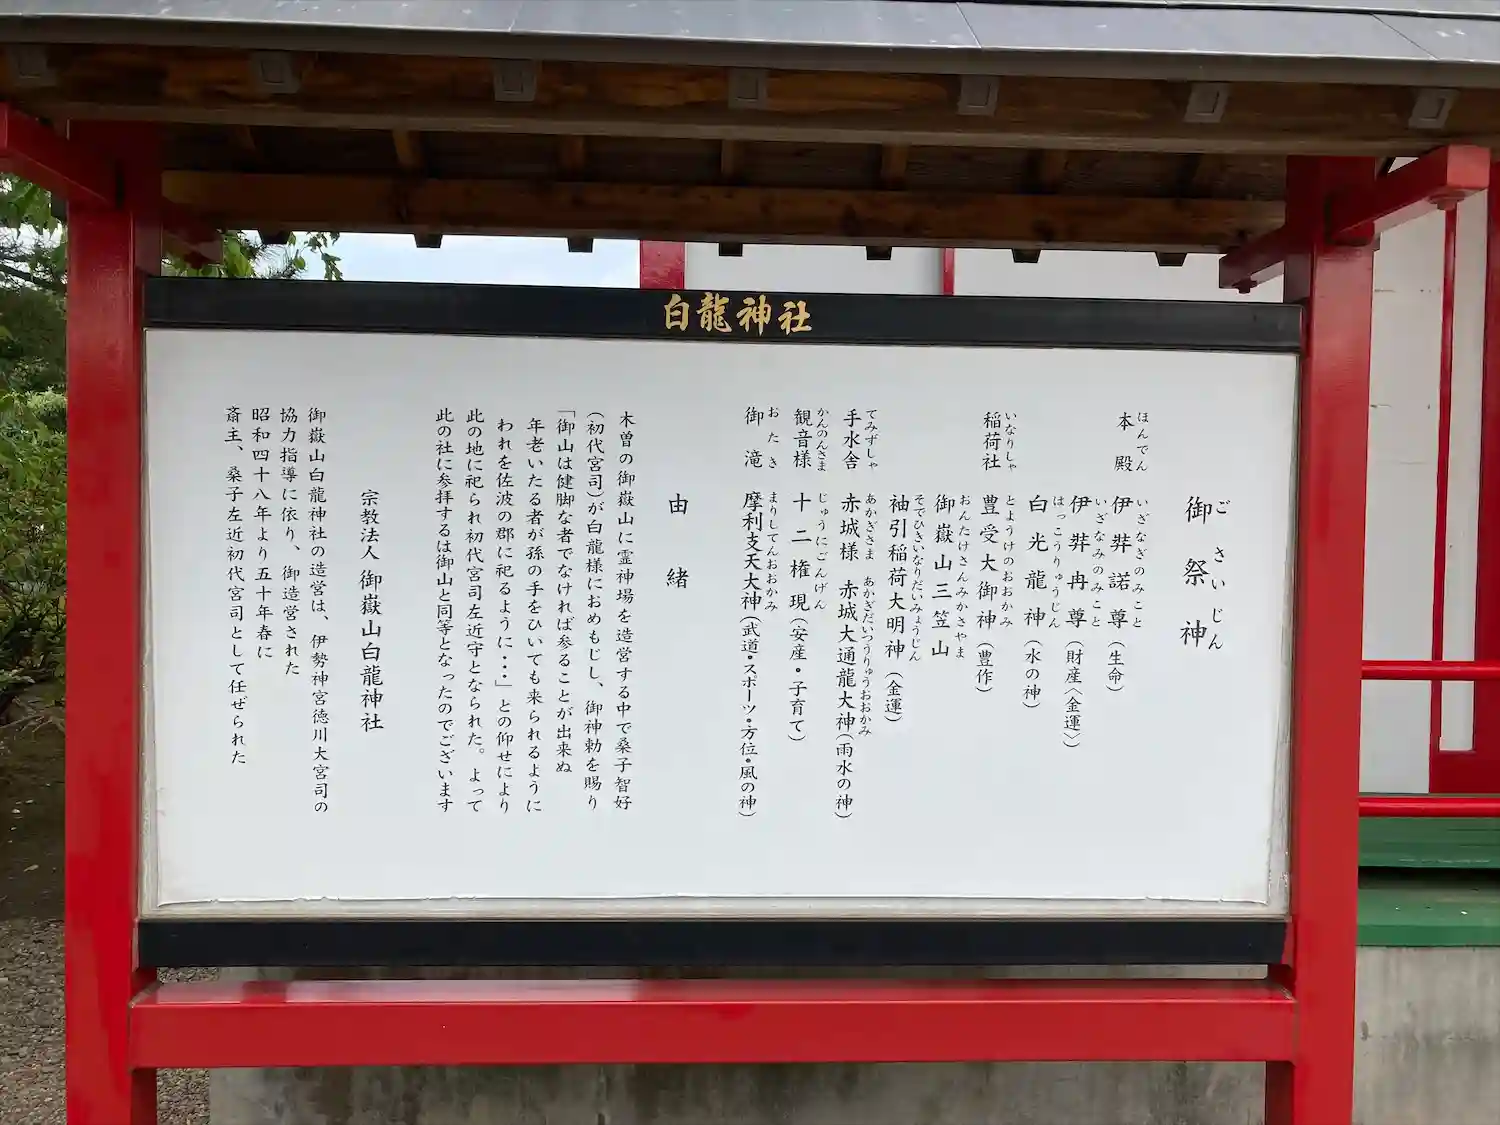 白龍神社
御祭神
ごさいじん
本殿
ほんでん
伊弉諾尊(生命)
いざなぎのみこと
伊弉冉尊(財産〈金運〉)
いざなみのみこと
白光龍神(水の神)
はっこうりゅうじん
稲荷社
いなりしゃ
豊受大御神(豊作)
とようけのおおかみ
御嶽山三笠山
おんたけさんみかさやま
袖引稲荷大明神(金運)
そでひきいなりだいみょうじん
手水舎
てみずしゃ
赤城様 赤城大通龍大神(雨水の神)
あかぎさま あかぎだいつうりゅうおおかみ
観音様
かんのんさま
十二権現(安産・子育て)
じゅうにごんげん
御滝
おたき
摩利支天大神(武道・スポーツ・方位・風の神)
まりしてんおおかみ
由緒
木曽の御嶽山に霊神場を造営する中で桑子智好
(初代宮司)が白龍様におめもじし、御神勅を賜り
「御山は健脚な者でなければ参ることが出来ぬ
年老いたる者が孫の手をひいても来られるように
われを佐波の郡に祀るように・・・」との仰せにより
此の地に祀られ初代宮司左近守となられた。よって
此の社に参拝するは御山と同等となったのでございます
宗教法人 御嶽山白龍神社
御嶽山白龍神社の造営は、伊勢神宮徳川大宮司の
協力指導に依り、御造営された
昭和四十八年より五十年春に
斎主、桑子左近初代宮司として任ぜられた